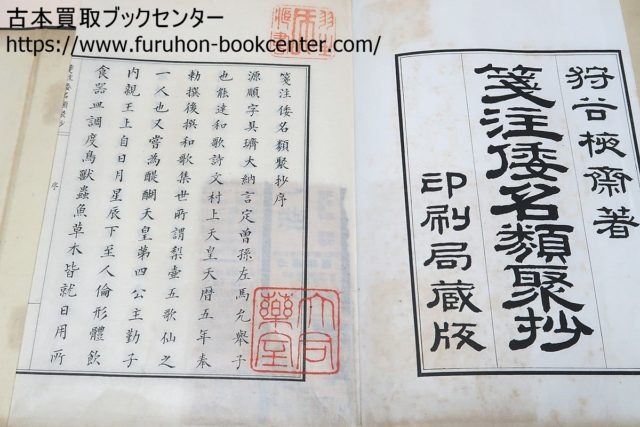 古本買取ブックセンター
https://www.furuhon-bookcenter.com/
狩谷棭齋著
箋注倭名類聚抄
印刷局藏版
箋注倭名類聚抄序
源順字具瑃大納言定曾孫左馬允擧子
也能達和歌詩文村上天皇天暦五年奉
勅撰後撰和歌集世所謂梨壷五歌仙之
一人也又嘗為醍醐天皇第四公主勤子
内親王上自日月星辰下至人倫形體飲
食器皿調度鳥獸蟲魚草木皆就日用所
序